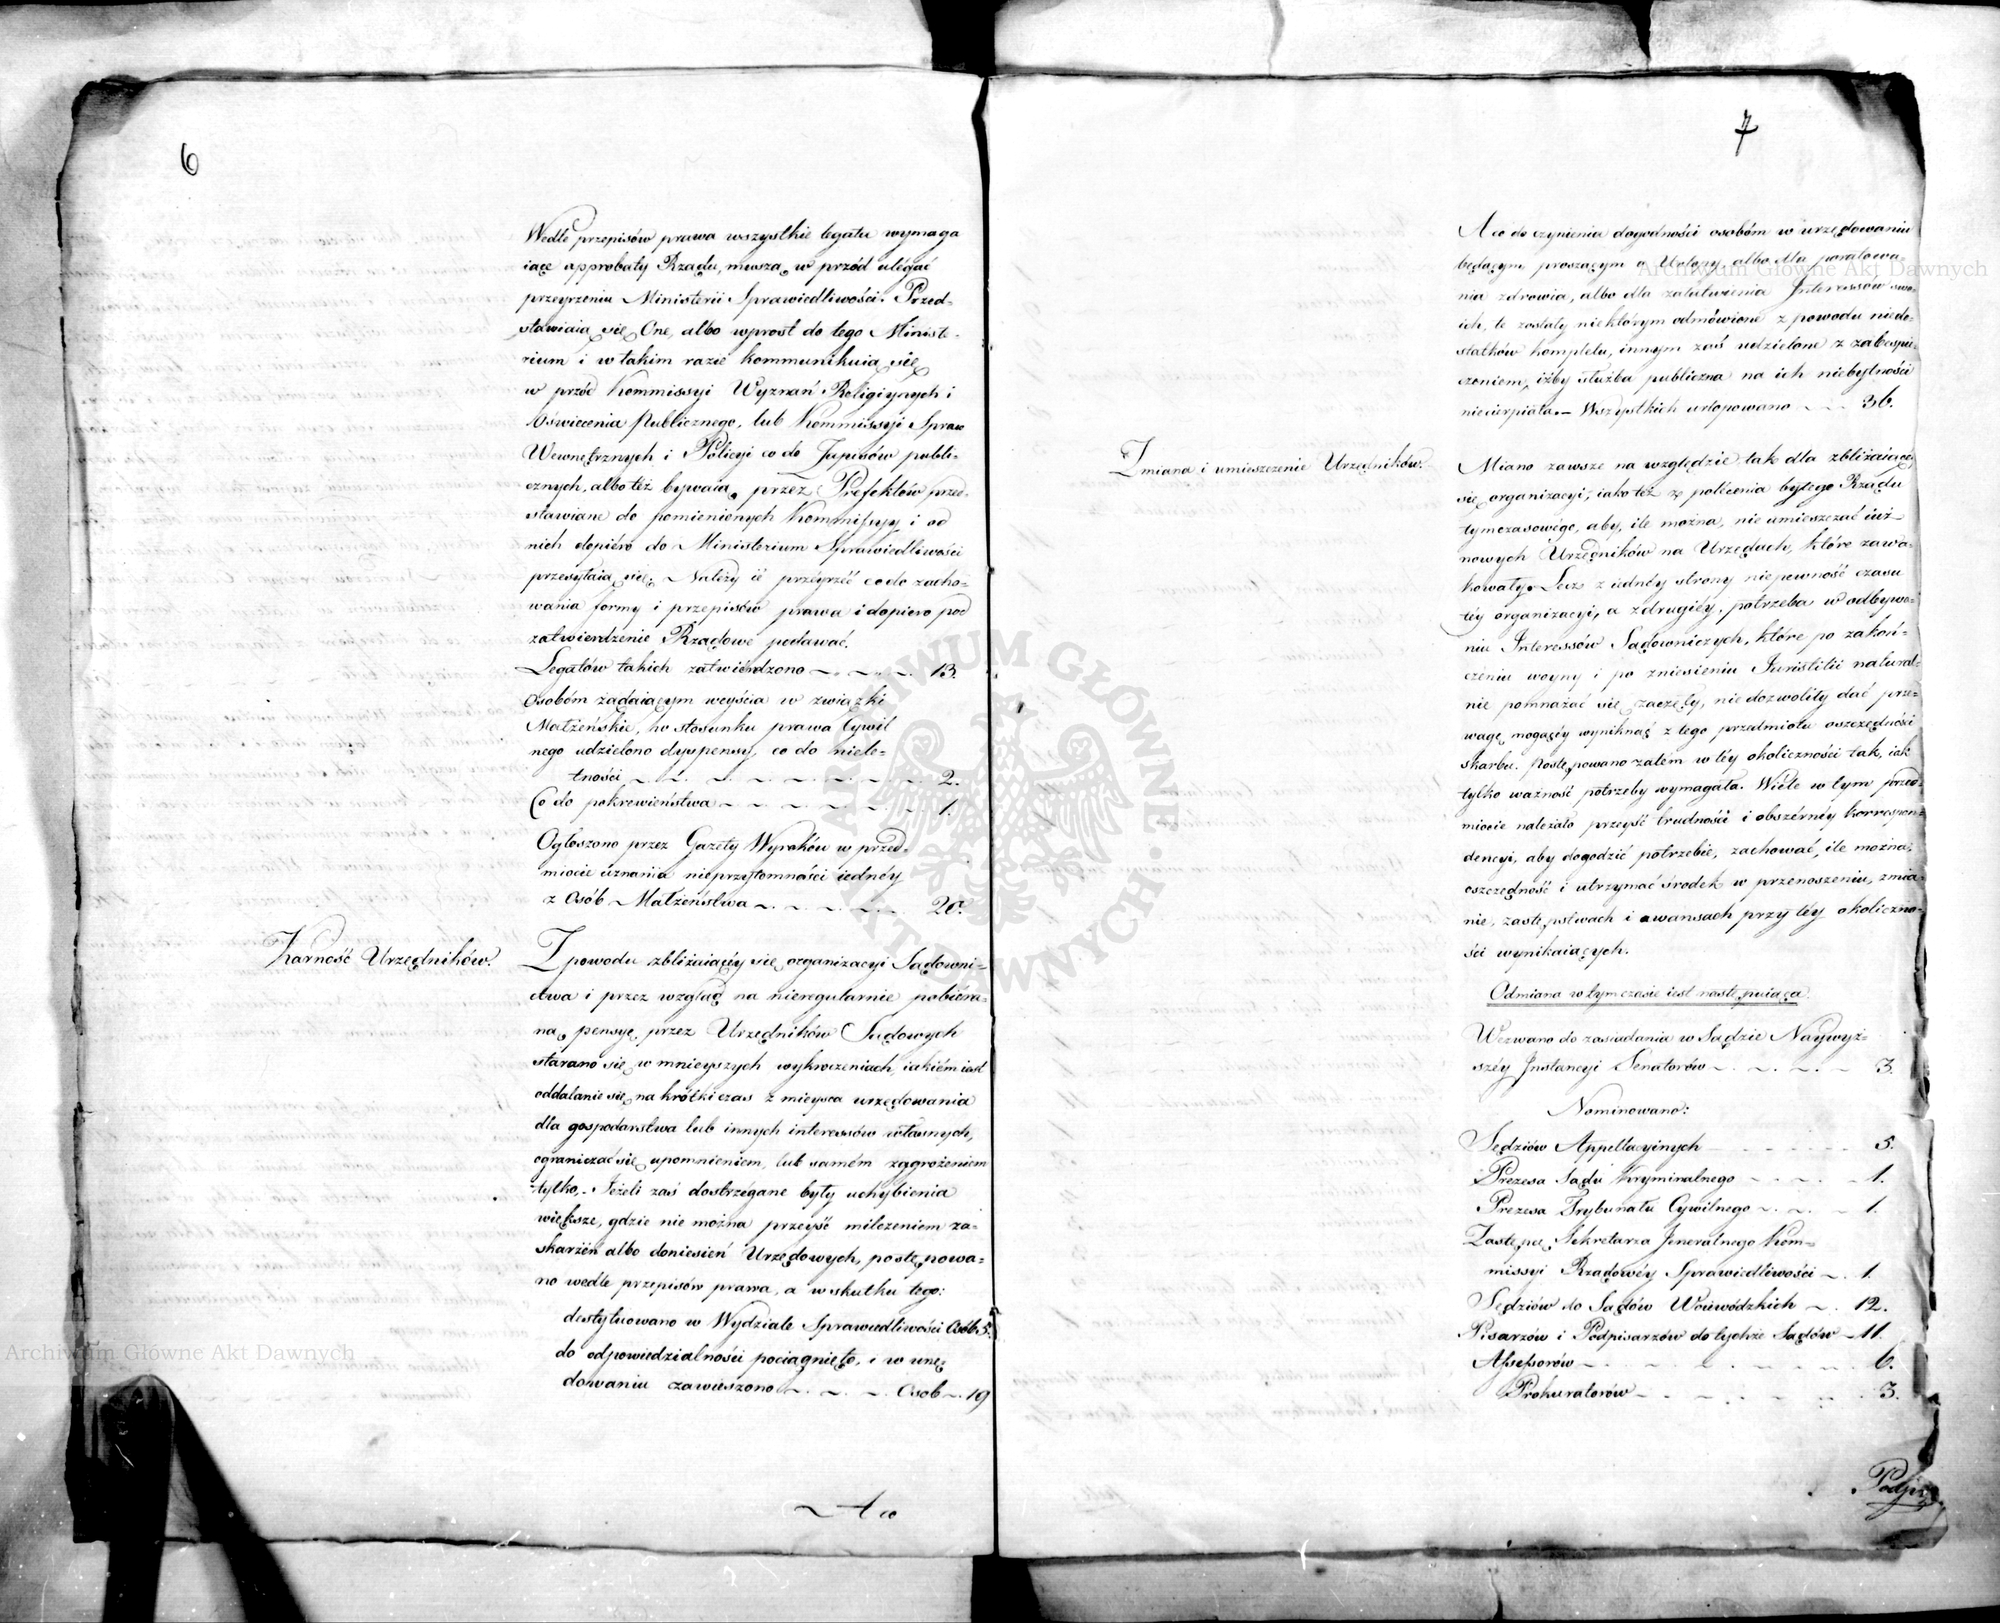 6
Wedle przepisów prawa wszystkie legata wymaga
iące approbaty Rządu, muszą w przód ulégać
przeyrzeniu Ministerii Sprawiedliwości. Przed-
stawiaią się One, albo wprost do tego Ministe-
rium i w takim razie kommunikuią się
w przód Kommissyi Wyznań Religiynych i
Oświecenia Publicznego, lub Kommissyi Spraw
Wewnętrznych i Policyi co do Zapisów publi-
cznych, albo też bywaią przez Prefektów przed-
stawiane do pomienionych Kommissyy i od
nich dopiéro do Ministerium Sprawiedliwości
przesyłaią się. Należy ie przeyrzéć co do zacho-
wania formy i przepisów prawa i dopiero pod
zatwierdzenie Rządowe podawać.
Legatów takich zatwierdzono 13.
Osobóm żądaiącym weyścia w związki
Małżeńskie, w stosunku prawa Cywil
nego udzielono dyspensy, co do niele-
tności 2.
Co do pokrewieństwa 1.
Ogłoszono przez Gazety Wyroków w przed-
miocie uznania nieprzytomności iednéy
z Osób Małżeństwa 20.
Karność Urzędników.
Z powodu zbliżaiącéy się organizacyi Sądowni-
ctwa i przez wzgląd na nieregularnie pobiéra-
ną pensyę przez Urzędników Sądowych
starano się w mnieyszych wykroczeniach, iakiém iest
oddalanie się na krótki czas z mieysca urzędowania
dla gospodarstwa lub innych interessów własnych,
ograniczać się upomnieniem, lub samém zagrożeniem
tylko. Jeżeli zaś dostrzégane były uchybienia
większe, gdzie nie można przeyść milczeniem za-
skarżeń albo doniesień Urzędowych, postępowa-
no wedle przepisów prawa, a w skutku tego:
destytuowano w Wydziale Sprawiedliwości Osób 5.
do odpowiedzialności pociągnięto, i w urzę-
dowaniu zawieszono Osob 19
A co
7
A co do czynienia dogodności osobóm w urzędowaniu
będącym proszącym o Urlopy, albo dla poratowa-
nia zdrowia, albo dla załatwienia Interessów swo-
ich, te zostały niektórym odmówione z powodu niedo-
statków kompletu, innym zaś udzielone z zabespie-
czeniem, iżby służba publiczna na ich niebytności
niecierpiała. Wszystkich urlopowano 36.
Zmiana i umieszczenie Urzędników.
Miano zawsze na względzie tak dla zbliżaiącéy
się organizacyi, iako też z polécenia byłego Rządu
tymczasowégo, aby, ile można, nie umieszczać iuż
nowych Urzędników na Urzędach, które zawa-
kowały. Lecz z iednéy strony niepewność czasu
téy organizacyi, a z drugiéy, potrzeba w odbywa-
niu Interessów Sądowniczych, które po zakoń-
czeniu woyny i po zniesieniu Juristitii natural-
nie pomnażać się zaczęły, niedozwoliły dać prze-
wagę mogącéy wyniknąć z tego przedmiotu oszczędności
skarbu. Postępowano zatem w téy okoliczności tak, iak
tylko ważność potrzeby wymagała. Wiele w tym przed-
miocie należało przeyść trudności i obszérnéy korrespon-
dencyi, aby dogodzić potrzebie, zachować, ile można,
oszczędność i utrzymać środek w przenoszeniu, zmia-
nie, zastępstwach i awansach przy téy okoliczno-
ści wynikaiących.
Odmiana w tym czasie iest następuiąca
Wezwano do zasiadania w Sądzie Naywyż-
széy Instancyi Senatorów 3.
Nominowano:
Sędziów Appellacyinych 5.
Prezesa Sądu Kryminalnego 1.
Prezesa Trybunału Cywilnego 1.
Zastępcę Sekretarza Jeneralnego Kom-
missyi Rządowéy Sprawiedliwości 1.
Sędziów do Sądów Woiewódzkich 12.
Pisarzów i Podpisarzów do tychże Sądów 11.
Assessorów 6.
Prokuratorów 3.
Archiwum Główne Akt Dawnych
Archiwum Główne Akt Dawnych
ARCHIWUM GŁÓWNE AKT DAWNYCH